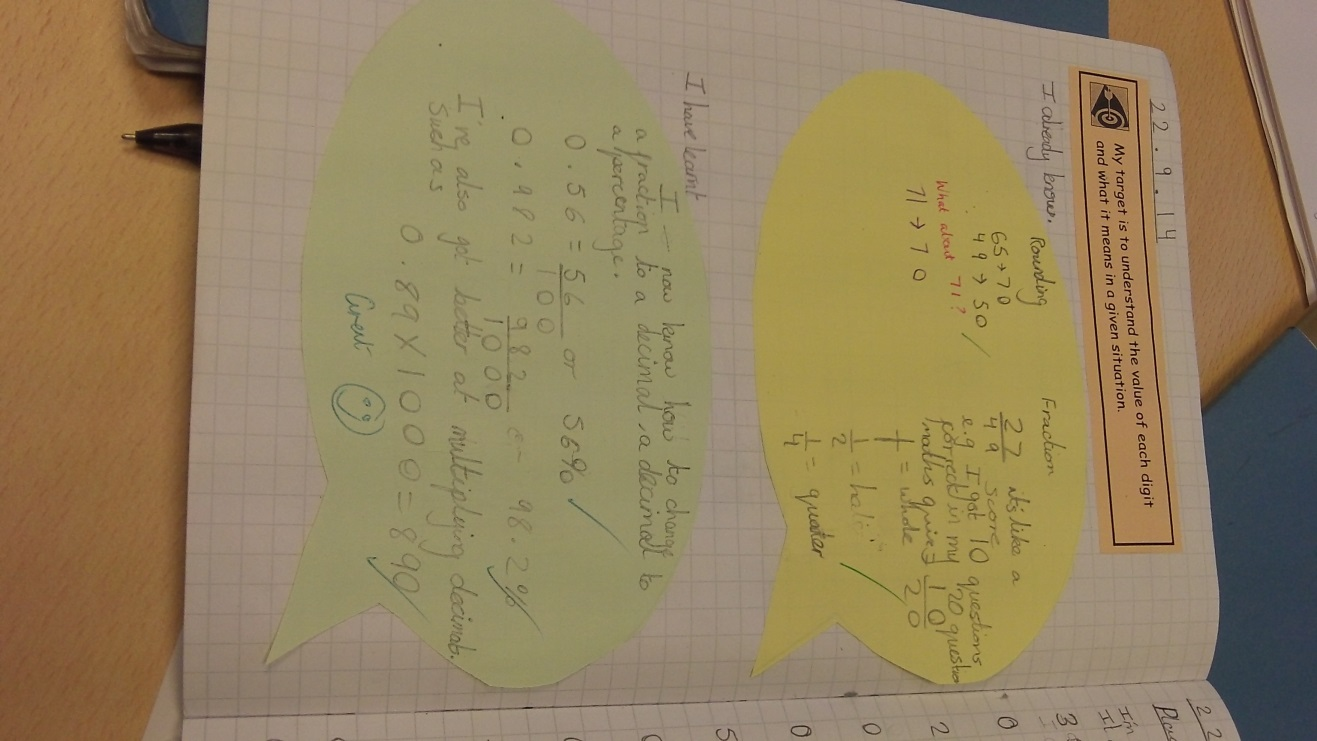 22.9.14
My target is to understand the value of each digit
and what it means in a given situation.
I already know.
Rounding
65→70
49→50
What about 71?
71→70
Fraction
27/49 it's like a
score
e.g I got 10 questions
correct in my 20 question
maths quiz = 10/20
1/1 = whole
1/2 = half
1/4 = quater
I have learnt
I now know how to change
a fraction to a decimal, a decimal to
a percentage.
0.56 = 56/100 or 56%
0.982 = 982/1000 or 98.2%
I've also got better at multiplying decimals.
Such as
0.89 x 1000 = 890
Great